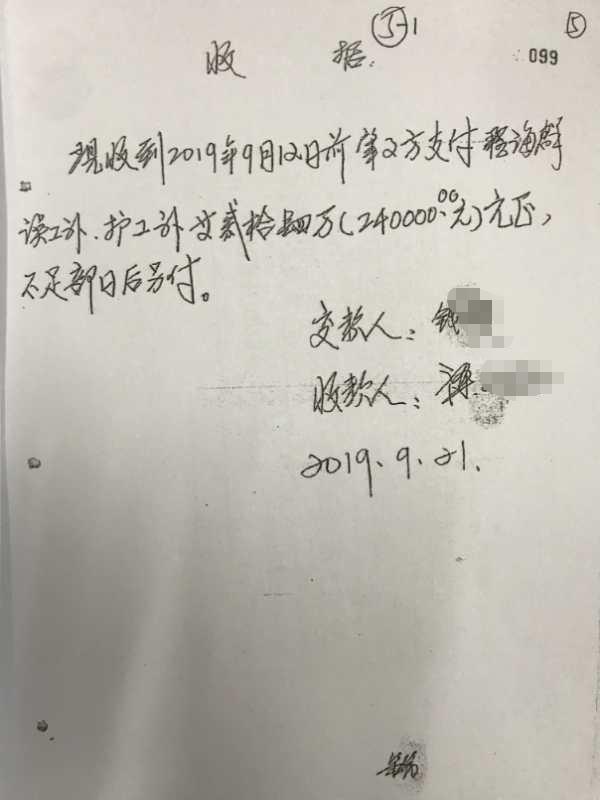 ③-1 ⑤
收 据. 099
现收到2019年9月12日前肇乙方支付程海群
误工补、护工补贰拾肆万(240000.00元)元正,
不足部日后另付。
交款人: 钱
收款人:
2019.9.21.